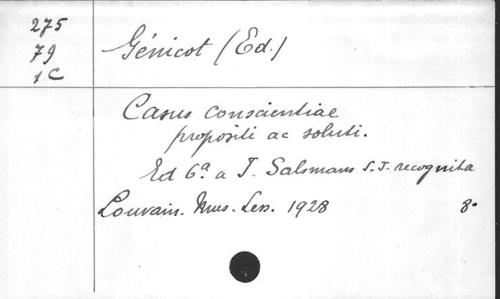 275
79
1C
Génicot (Ed.)
Casus conscientiae
propositi ac soluti.
Ed 6ª a J. Salsmans S.J. recognita
Louvain. Mus. Less. 1928 8º